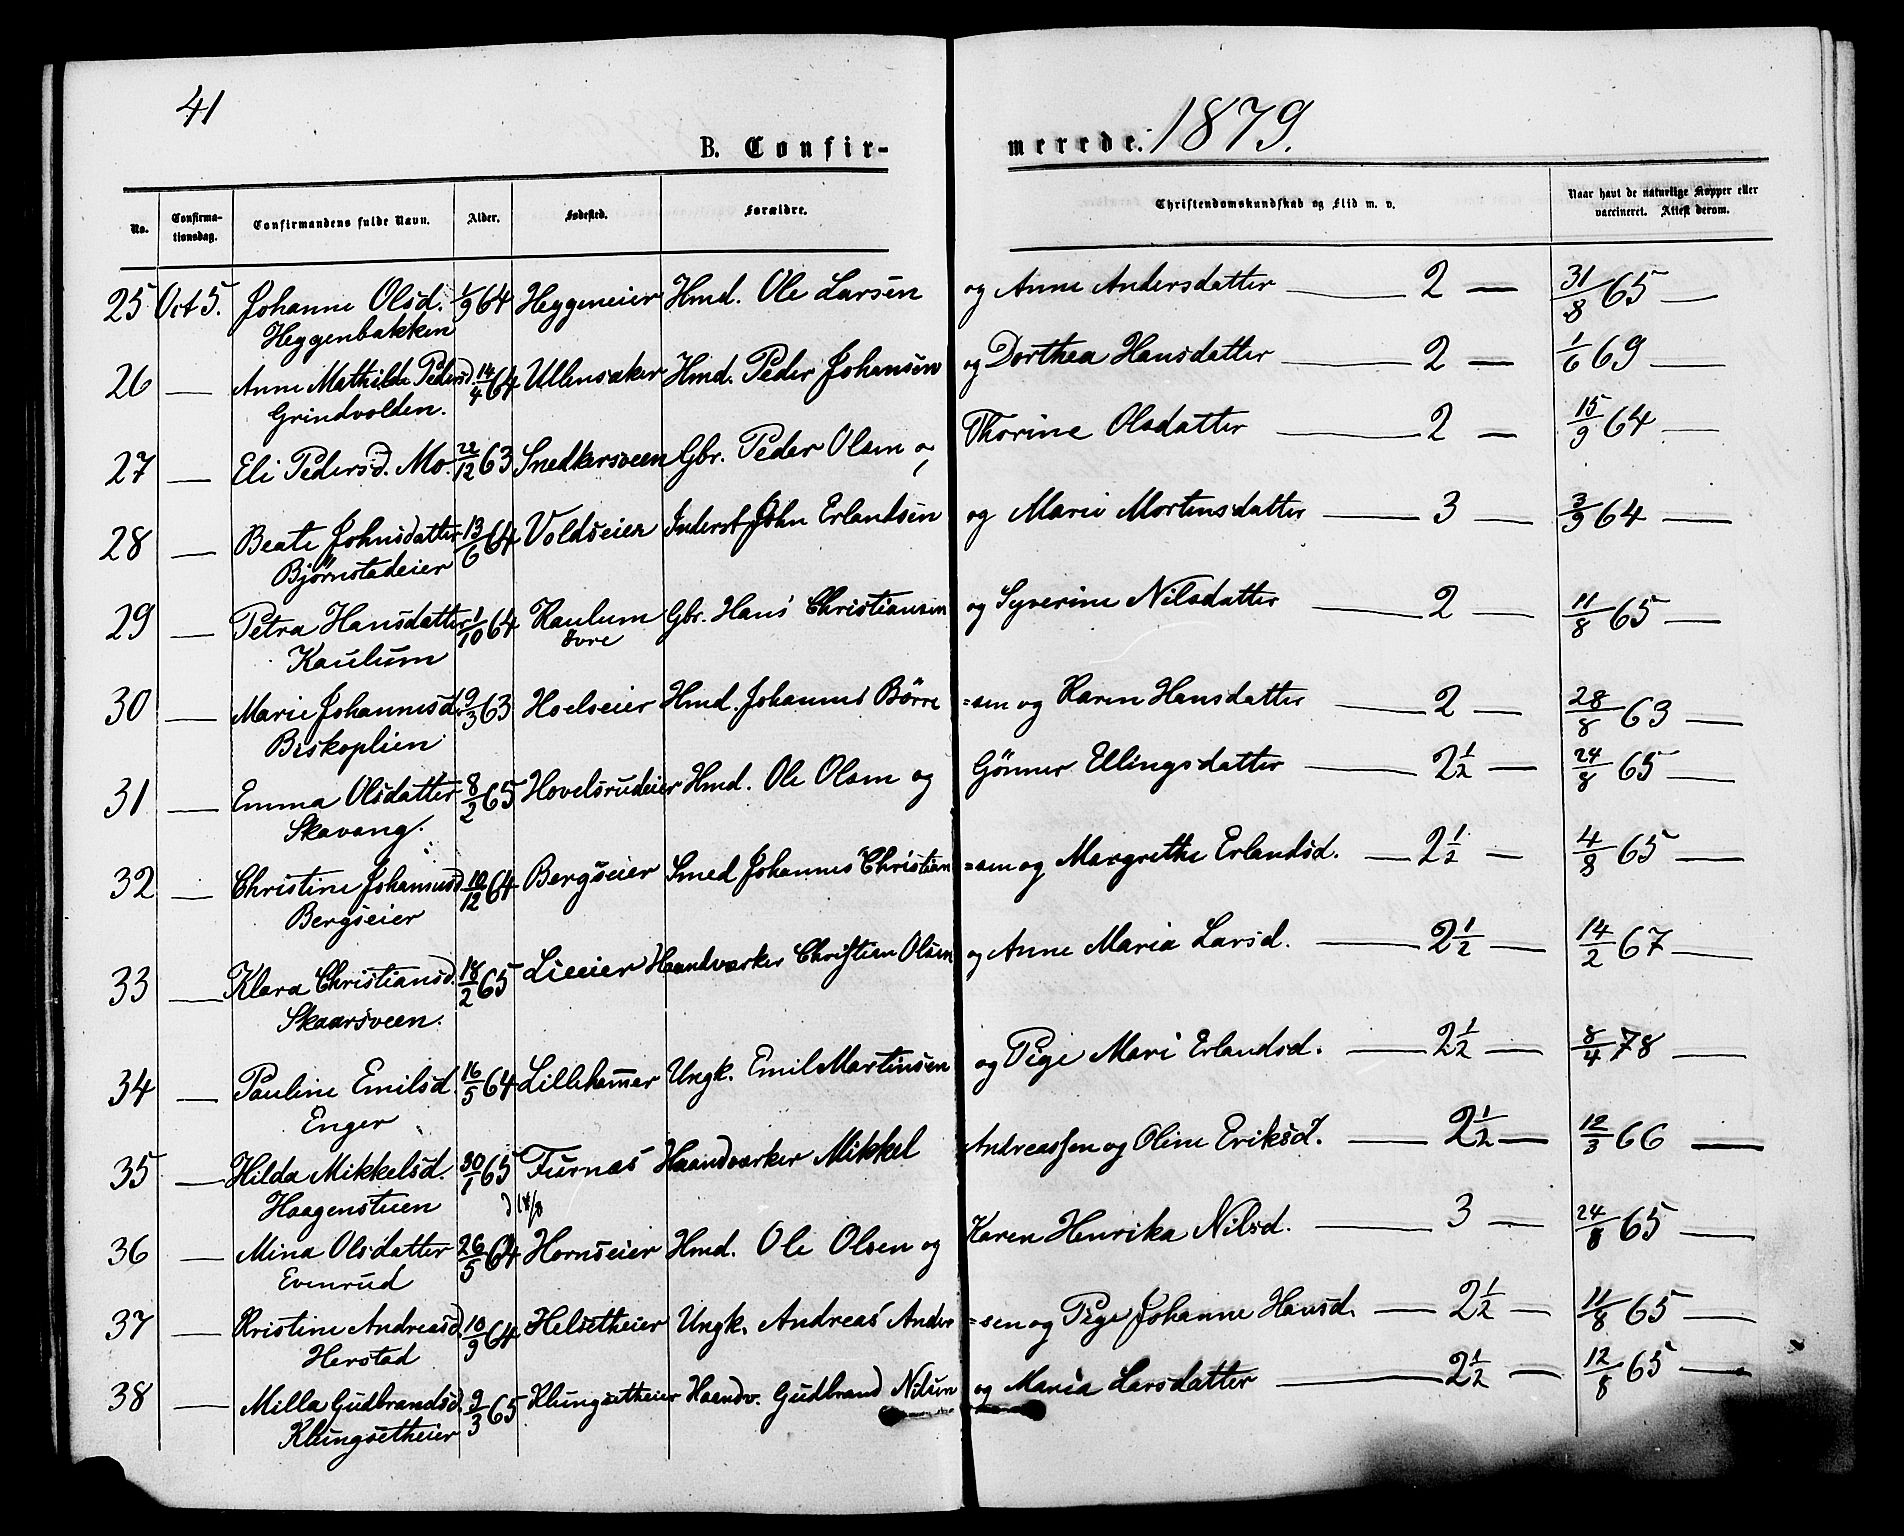 41
B. Confir-
merede. 1879.
No. Confirma-tionsdag. Confirmandens fulde Navn. Alder. Fødested. Forældre. Christendomskundskab og Flid m. v. Naar havt de naturlige Kopper eller vaccineret. Attest derom.
25 Oct 5. Johanne Olsd. 1/9 64 Heggeneier Hmd. Ole Larsen og Anne Andersdatter — 2 — 31/8 65 —
Heggenbakken
26 — Anne Mathilde Pedersd. 14/4 64 Ullensaker Hmd. Peder Johansen og Dorthea Hansdatter — 2 — 1/6 69 —
Grindvolden.
27 — Eli Pedersd. Mo. 22/12 63 Snedkersveen Gbr. Peder Olsen og Thorine Olsdatter — 2 — 15/9 64 —
28 — Beate Johnsdatter 13/6 64 Voldseier Inderst John Erlandsen og Marie Mortensdatter — 3 — 3/9 64 —
Bjørnstadeier
29 — Petra Hansdatter 1/10 64 Kaulum Gbr. Hans Christiansen og Syverine Nilsdatter — 2 — 11/8 65 —
Kaulum øvre
30 — Marie Johannesd. 9/3 63 Hoelseier Hmd. Johannes Börre =sen og Karen Hansdatter — 2 — 28/8 63 —
Biskoplien
31 — Emma Olsdatter 8/2 65 Hovelsrudeier Hmd. Ole Olsen og Gönner Ellingsdatter — 2 1/2 — 24/8 65 —
Skavang.
32 — Christine Johannesd. 10/12 64 Bergseier Smed Johannes Christian =sen og Margrethe Erlandsd. — 2 1/2 — 4/8 65 —
Bergseier
33 — Klara Christiansd. 18/2 65 Lieeier Haandværker Christian Olsen og Anne Maria Larsd. — 2 1/2 — 14/2 67 —
Skaarsveen.
34 — Pauline Emilsd. 16/5 64 Lillehammer Ungk. Emil Martinsen og Pige Mari Erlandsd. — 2 1/2 — 8/4 78 —
Enger
35 — Hilda Mikkelsd. 30/1 65 Furnæs Haandværker Mikkel Andreassen og Oline Eriksd. — 2 1/2 — 12/3 66 —
Haagenstuen
36 — Mina Olsdatter 26/5 64 Hornseier Hmd. Ole Olsen og Karen Henrika Nilsd. — 3 — 24/8 65 —
Evenrud
37 — Kristine Andreasd. 10/9 64 Helsetheier Ungk. Andreas Anders =sen og Pige Johanne Hansd. — 2 1/2 — 11/8 65 —
Herstad
38 — Milla Gudbrandsd. 9/3 65 Klungsetheier Haandv. Gudbrand Nilsen og Maria Larsdatter — 2 1/2 — 12/8 65 —
Klungsetheier